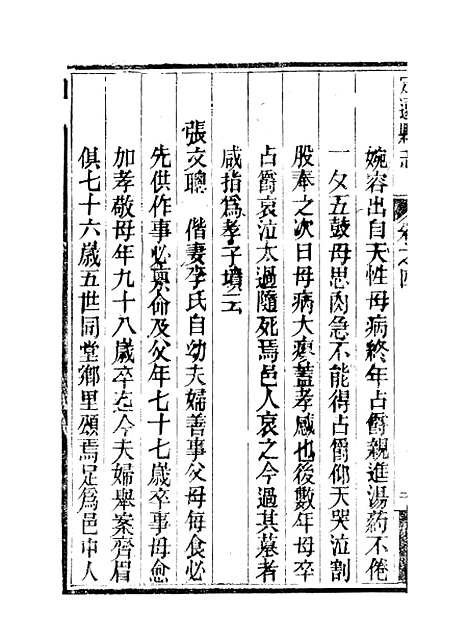 定遠縣志 卷之四 二
婉容出自天性母病終年占爵親進湯葯不倦
一夂五鼓母思肉急不能得占爵仰天哭泣割
股奉之次日母病大痊蓋孝感也後數年母卒
占爵哀泣太過隨死焉邑人哀之今過其墓者
咸指為孝子墳云
張文聰 偕妻李氏自幼夫婦善事父母每食必
先供作事必稟命及父年七十七歲卒事母愈
加孝敬母年九十八歲卒迄今夫婦舉案齊眉
俱七十六歲五世同堂鄉里頌焉足為邑中人